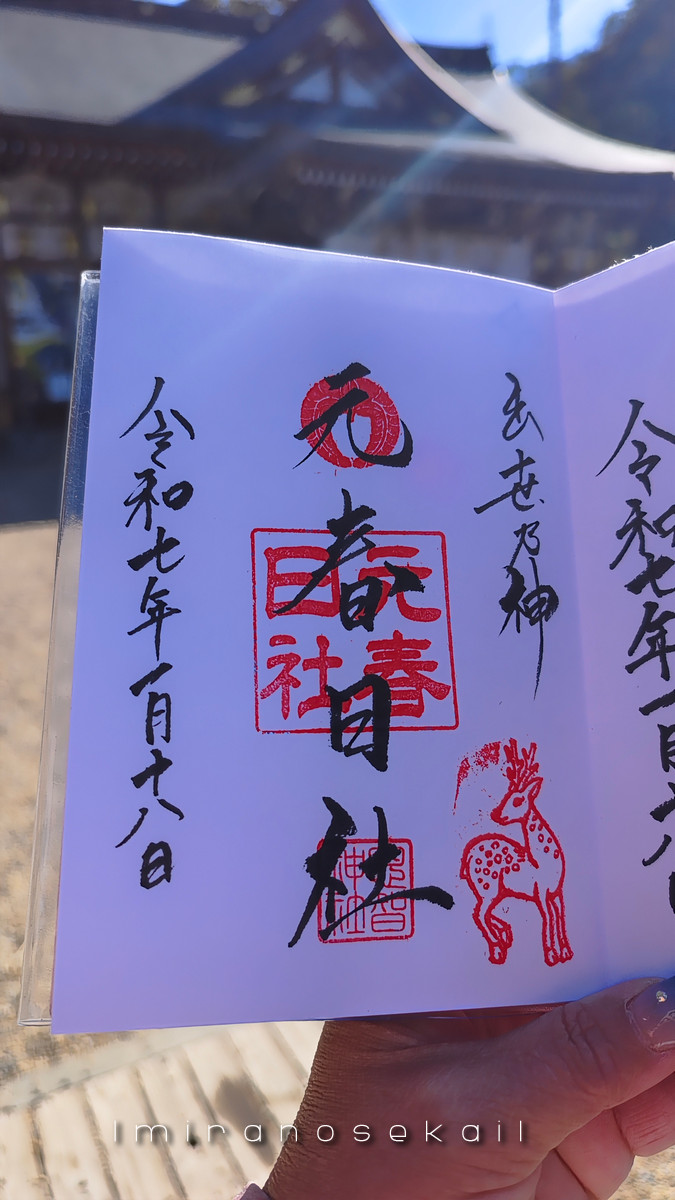 出世乃神
元春日社
元春
日社
令和七年一月十八日
令和七年一月十八日
lmiranosekail